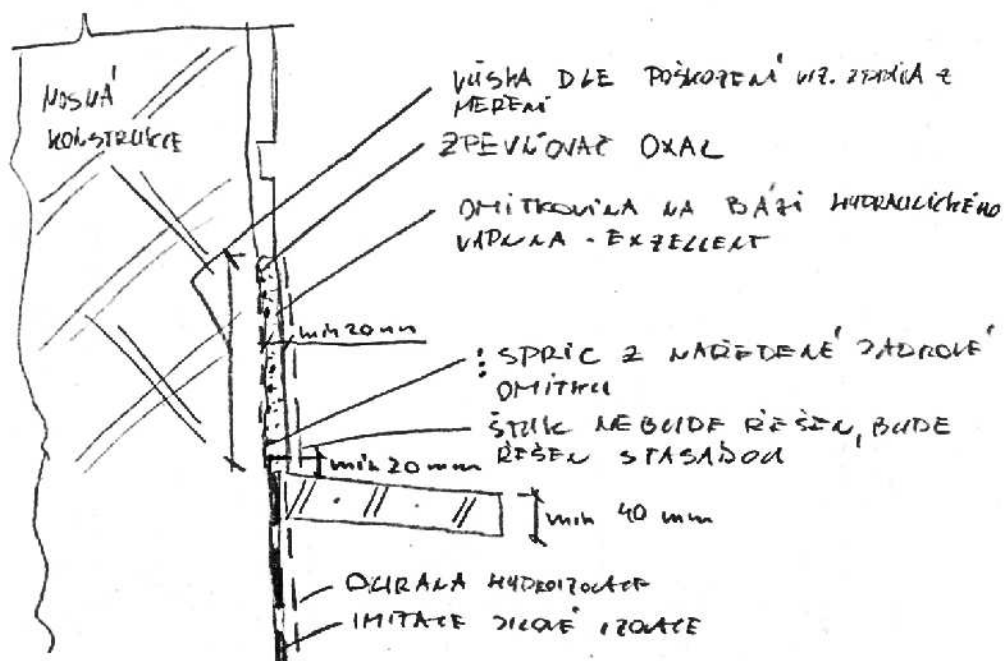 NOSNÁ
KONSTRUKCE
VÝŠKA DLE POŠKOZENÍ VIZ. Z
MĚŘENÍ
ZPEVŇOVAČ OXAL
OMÍTKOVINA NA BÁZI HYDRAULICKÉHO
VÁPNA - EXZELLENT
min 20 mm
: SPRIC Z NAŘEDĚNÉ JÁDROVÉ
OMÍTKY
ŠTUK NEBUDE ŘEŠEN, BUDE
ŘEŠEN S FASÁDOU
min 20 mm
min 40 mm
OCHRANA HYDROIZOLACE
IMITACE IZOLACE